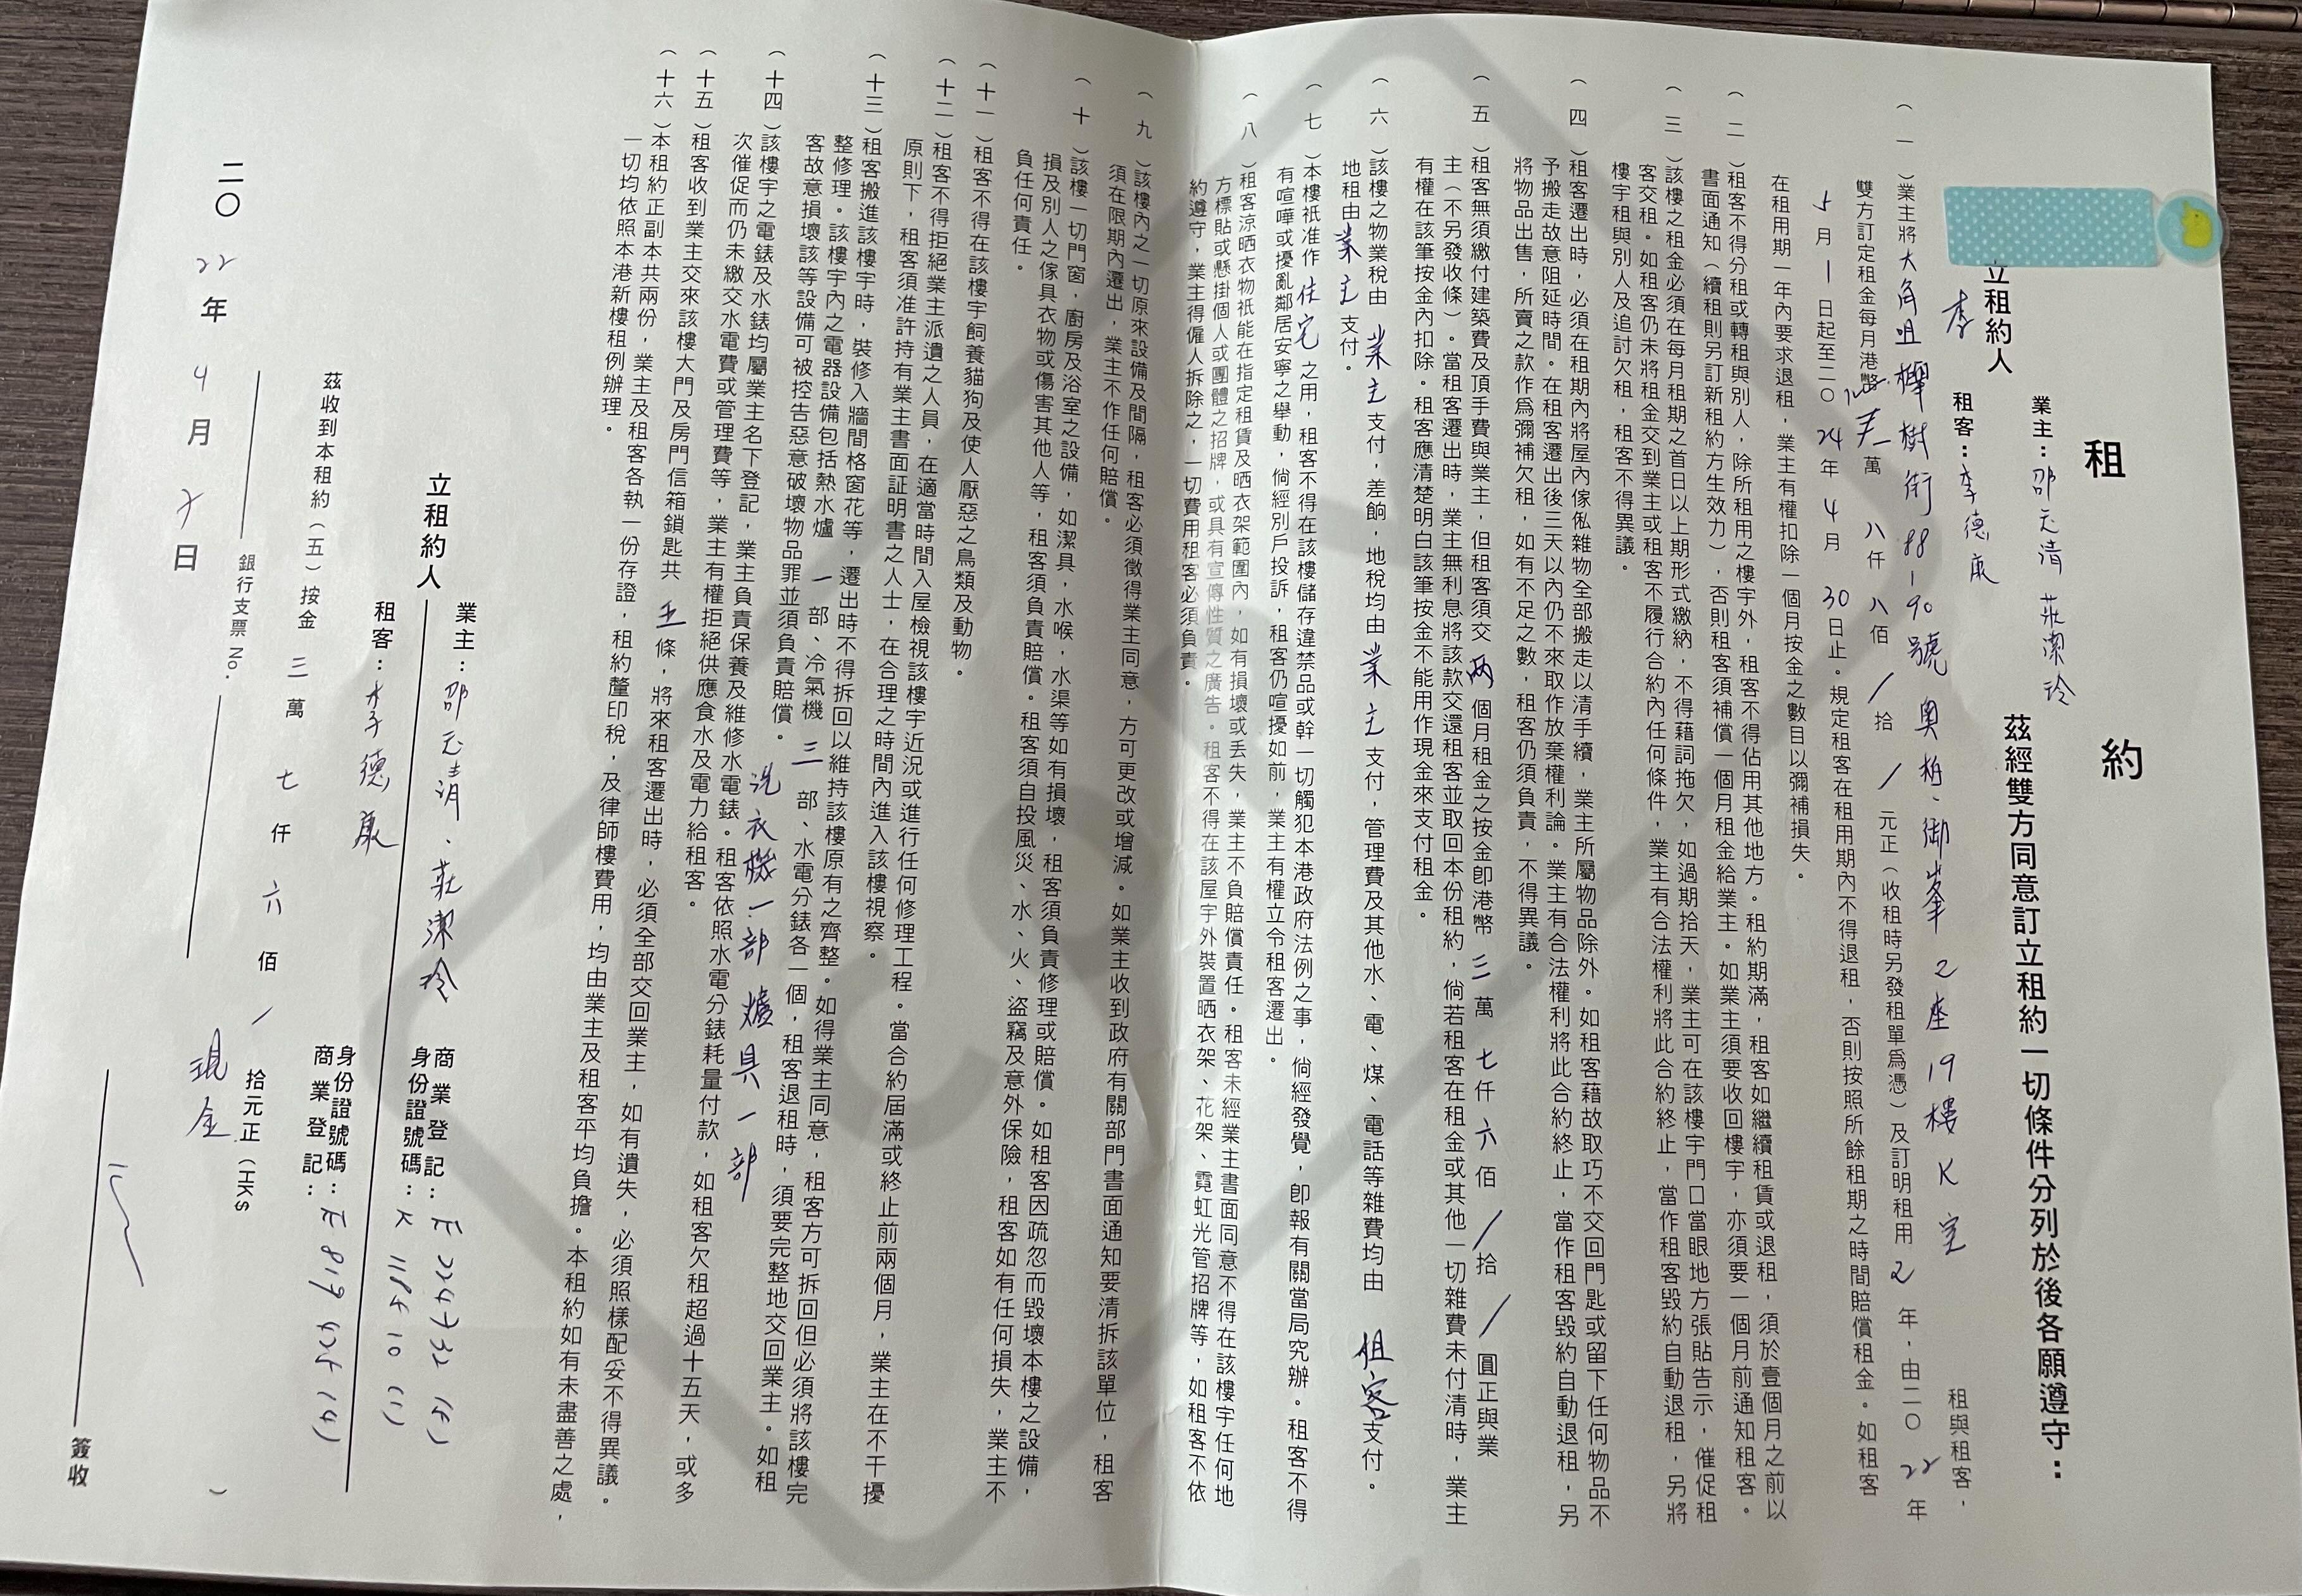 租約
業主：邵元清 莊潔玲
立租約人
茲經雙方同意訂立租約一切條件分列於後各願遵守：
租客：李德康
李
（一）業主將大角咀櫸樹街88-90號奧柏·御峯2座19樓K室 租與租客，
雙方訂定租金每月港幣 壹萬 八仟 八佰 / 拾 / 元正（收租時另發租單爲憑）及訂明租用 2 年，由二〇22年
5月1日起至二〇24年4月30日止。規定租客在租用期內不得退租，否則按照所餘租期之時間賠償租金。如租客
在租用期一年內要求退租，業主有權扣除一個月按金之數目以彌補損失。
（二）租客不得分租或轉租與別人，除所租用之樓宇外，租客不得佔用其他地方。租約期滿，租客如繼續租賃或退租，須於壹個月之前以
書面通知（續租則另訂新租約方生效力），否則租客須補償一個月租金給業主。如業主須要收回樓宇，亦須要一個月前通知租客。
（三）該樓之租金必須在每月租期之首日以上期形式繳納，不得藉詞拖欠，如過期拾天，業主可在該樓宇門口當眼地方張貼告示，催促租
客交租。如租客仍未將租金交到業主或租客不履行合約內任何條件，業主有合法權利將此合約終止，當作租客毀約自動退租，另將
樓宇租與別人及追討欠租，租客不得異議。
（四）租客遷出時，必須在租期內將屋內傢俬雜物全部搬走以清手續，業主所屬物品除外。如租客藉故取巧不交回門匙或留下任何物品不
予搬走故意阻延時間。在租客遷出後三天以內仍不來取作放棄權利論。業主有合法權利將此合約終止，當作租客毀約自動退租，另
將物品出售，所賣之款作爲彌補欠租，如有不足之數，租客仍須負責，不得異議。
（五）租客無須繳付建築費及頂手費與業主，但租客須交 兩 個月租金之按金卽港幣 三萬 七仟 六佰 / 拾 / 圓正與業
主（不另發收條）。當租客遷出時，業主無利息將該款交還租客並取回本份租約，倘若租客在租金或其他一切雜費未付清時，業主
有權在該筆按金內扣除。租客應清楚明白該筆按金不能用作現金來支付租金。
（六）該樓之物業稅由 業主 支付，差餉，地稅均由 業主 支付，管理費及其他水、電、煤、電話等雜費均由 租客 支付。
地租由 業主 支付。
（七）本樓衹准作 住宅 之用，租客不得在該樓儲存違禁品或幹一切觸犯本港政府法例之事，倘經發覺，卽報有關當局究辦。租客不得
有喧嘩或擾亂鄰居安寧之舉動，倘經別戶投訴，租客仍喧擾如前，業主有權立令租客遷出。
（八）租客涼晒衣物衹能在指定租賃及晒衣架範圍內，如有損壞或丟失，業主不負賠償責任。租客未經業主書面同意不得在該樓宇任何地
方標貼或懸掛個人或團體之招牌，或具有宣傳性質之廣告。租客不得在該屋宇外裝置晒衣架、花架、霓虹光管招牌等，如租客不依
約遵守，業主得僱人拆除之，一切費用租客必須負責。
（九）該樓內之一切原來設備及間隔，租客必須徵得業主同意，方可更改或增減。如業主收到政府有關部門書面通知要清拆該單位，租客
須在限期內遷出，業主不作任何賠償。
（十）該樓一切門窗，廚房及浴室之設備，如潔具，水喉，水渠等如有損壞，租客須負責修理或賠償。如租客因疏忽而毀壞本樓之設備，
損及別人之傢具衣物或傷害其他人等，租客須負責賠償。租客須自投風災、水、火、盜竊及意外保險，租客如有任何損失，業主不
負任何責任。
（十一）租客不得在該樓宇飼養貓狗及使人厭惡之鳥類及動物。
（十二）租客不得拒絕業主派遣之人員，在適當時間入屋檢視該樓宇近況或進行任何修理工程。當合約屆滿或終止前兩個月，業主在不干擾
原則下，租客須准許持有業主書面証明書之人士，在合理之時間內進入該樓視察。
（十三）租客搬進該樓宇時，裝修入牆間格窗花等，遷出時不得拆回以維持該樓原有之齊整。如得業主同意，租客方可拆回但必須將該樓完
整修理。該樓宇內之電器設備包括熱水爐 一 部、冷氣機 三 部、水電分錶各一個，租客退租時，須要完整地交回業主。如租
客故意損壞該等設備可被控告惡意破壞物品罪並須負責賠償。 洗衣機一部 爐具一部
（十四）該樓宇之電錶及水錶均屬業主名下登記，業主負責保養及維修水電錶。租客依照水電分錶耗量付款，如租客欠租超過十五天，或多
次催促而仍未繳交水電費或管理費等，業主有權拒絕供應食水及電力給租客。
（十五）租客收到業主交來該樓大門及房門信箱鎖匙共 五 條，將來租客遷出時，必須全部交回業主，如有遺失，必須照樣配妥不得異議。
（十六）本租約正副本共兩份，業主及租客各執一份存證，租約釐印稅，及律師樓費用，均由業主及租客平均負擔。本租約如有未盡善之處，
一切均依照本港新樓租例辦理。
業主：邵元清、莊潔玲
商業登記：
身份證號碼：
立租約人
租客：李德康
身份證號碼：
商業登記：
茲收到本租約（五）按金 三萬 七仟 六佰 / 拾元正（HK$
銀行支票 No. 現金 ）
二〇22年4月7日
簽收